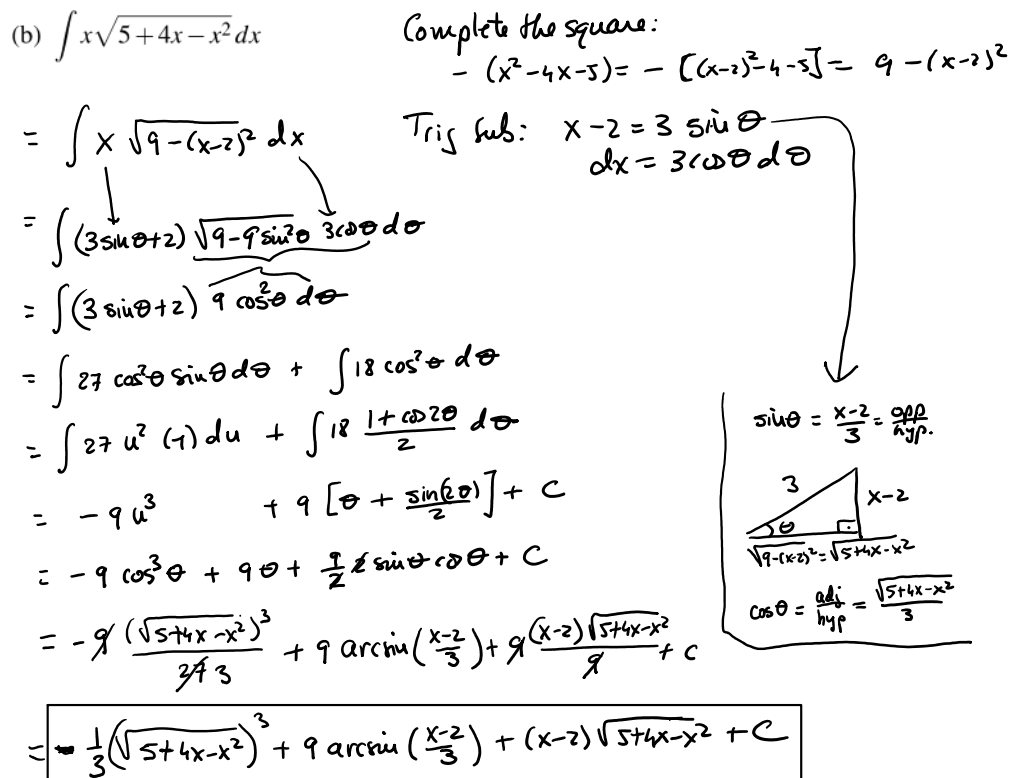 (b) ∫ x√(5+4x−x²) dx
Complete the square:
− (x²−4x−5) = − [(x−2)²−4−5] = 9 −(x−2)²
= ∫ x √(9−(x−2)²) dx
Trig Sub: x−2 = 3 sin θ
dx = 3 cos θ dθ
= ∫ (3 sin θ+2) √(9−9 sin²θ) 3 cos θ dθ
= ∫ (3 sin θ+2) 9 cos²θ dθ
= ∫ 27 cos²θ sin θ dθ + ∫ 18 cos²θ dθ
= ∫ 27 u² (−1) du + ∫ 18 (1+cos 2θ)/2 dθ
= −9 u³ + 9 [θ + sin(2θ)/2] + C
= −9 cos³θ + 9θ + 9/2 2 sin θ cos θ + C
= −9 (√(5+4x−x²))³/27 3 + 9 arcsin((x−2)/3) + 9 (x−2)√(5+4x−x²)/9 + C
= − 1/3 (√(5+4x−x²))³ + 9 arcsin((x−2)/3) + (x−2) √(5+4x−x²) + C
sin θ = (x−2)/3 = opp/hyp.
3
x−2
θ
√(9−(x−2)²) = √(5+4x−x²)
cos θ = adj/hyp = √(5+4x−x²)/3